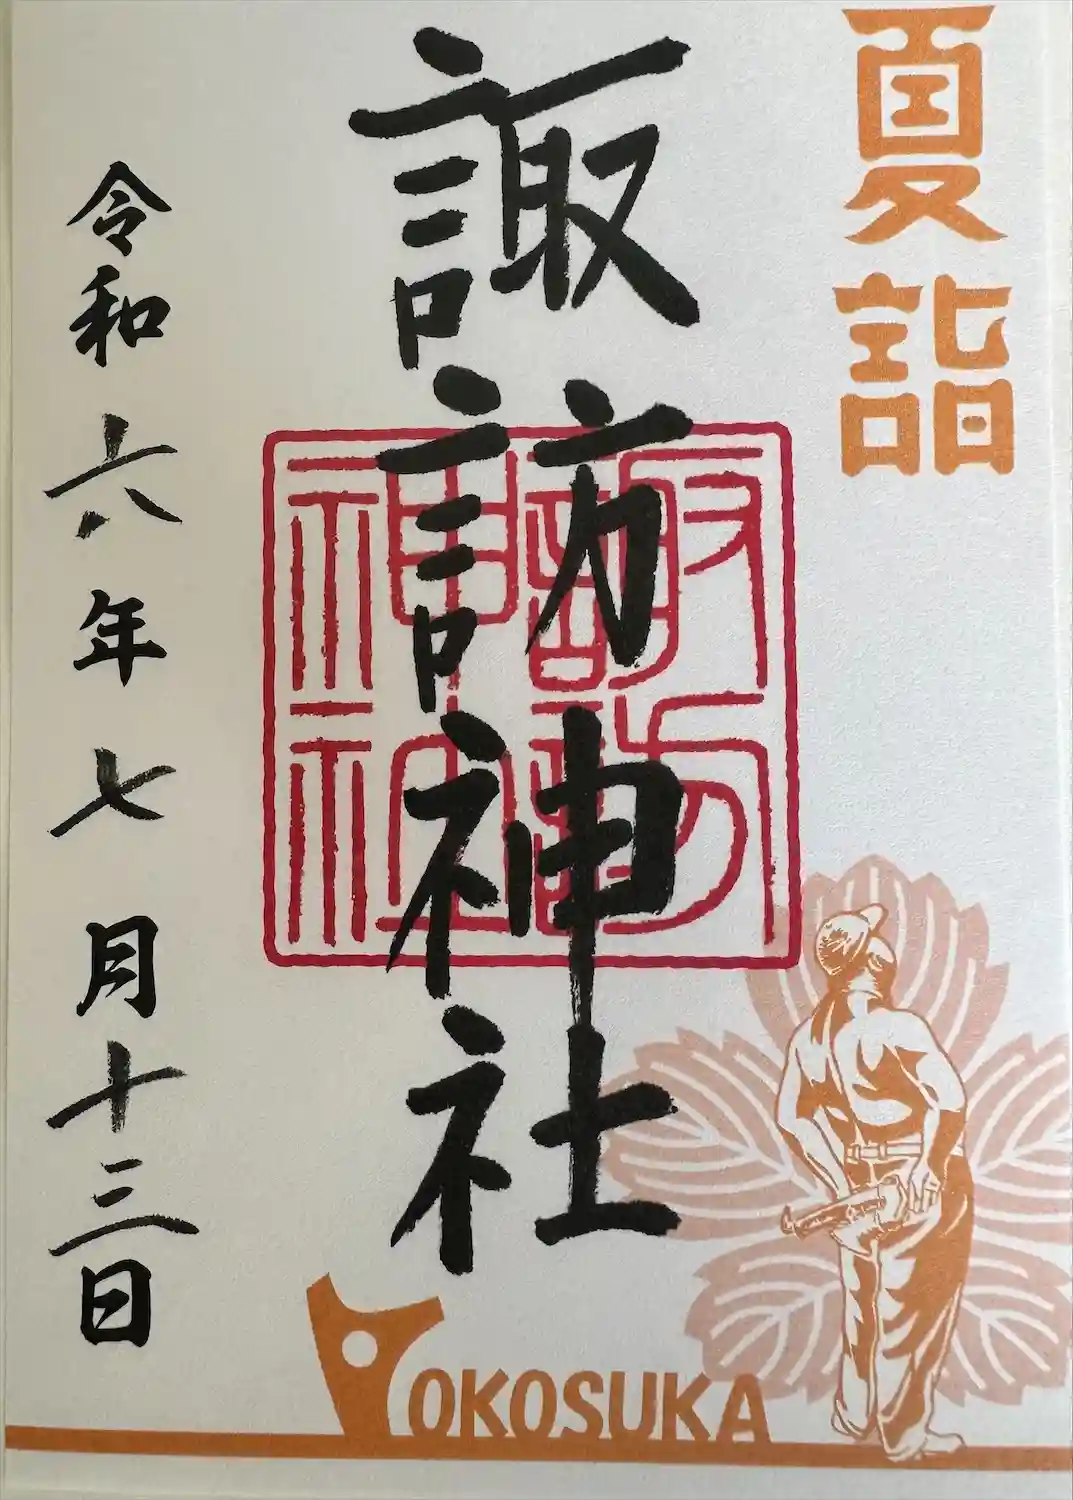 夏詣
諏訪神社
諏訪
神社
令和六年七月十三日
YOKOSUKA